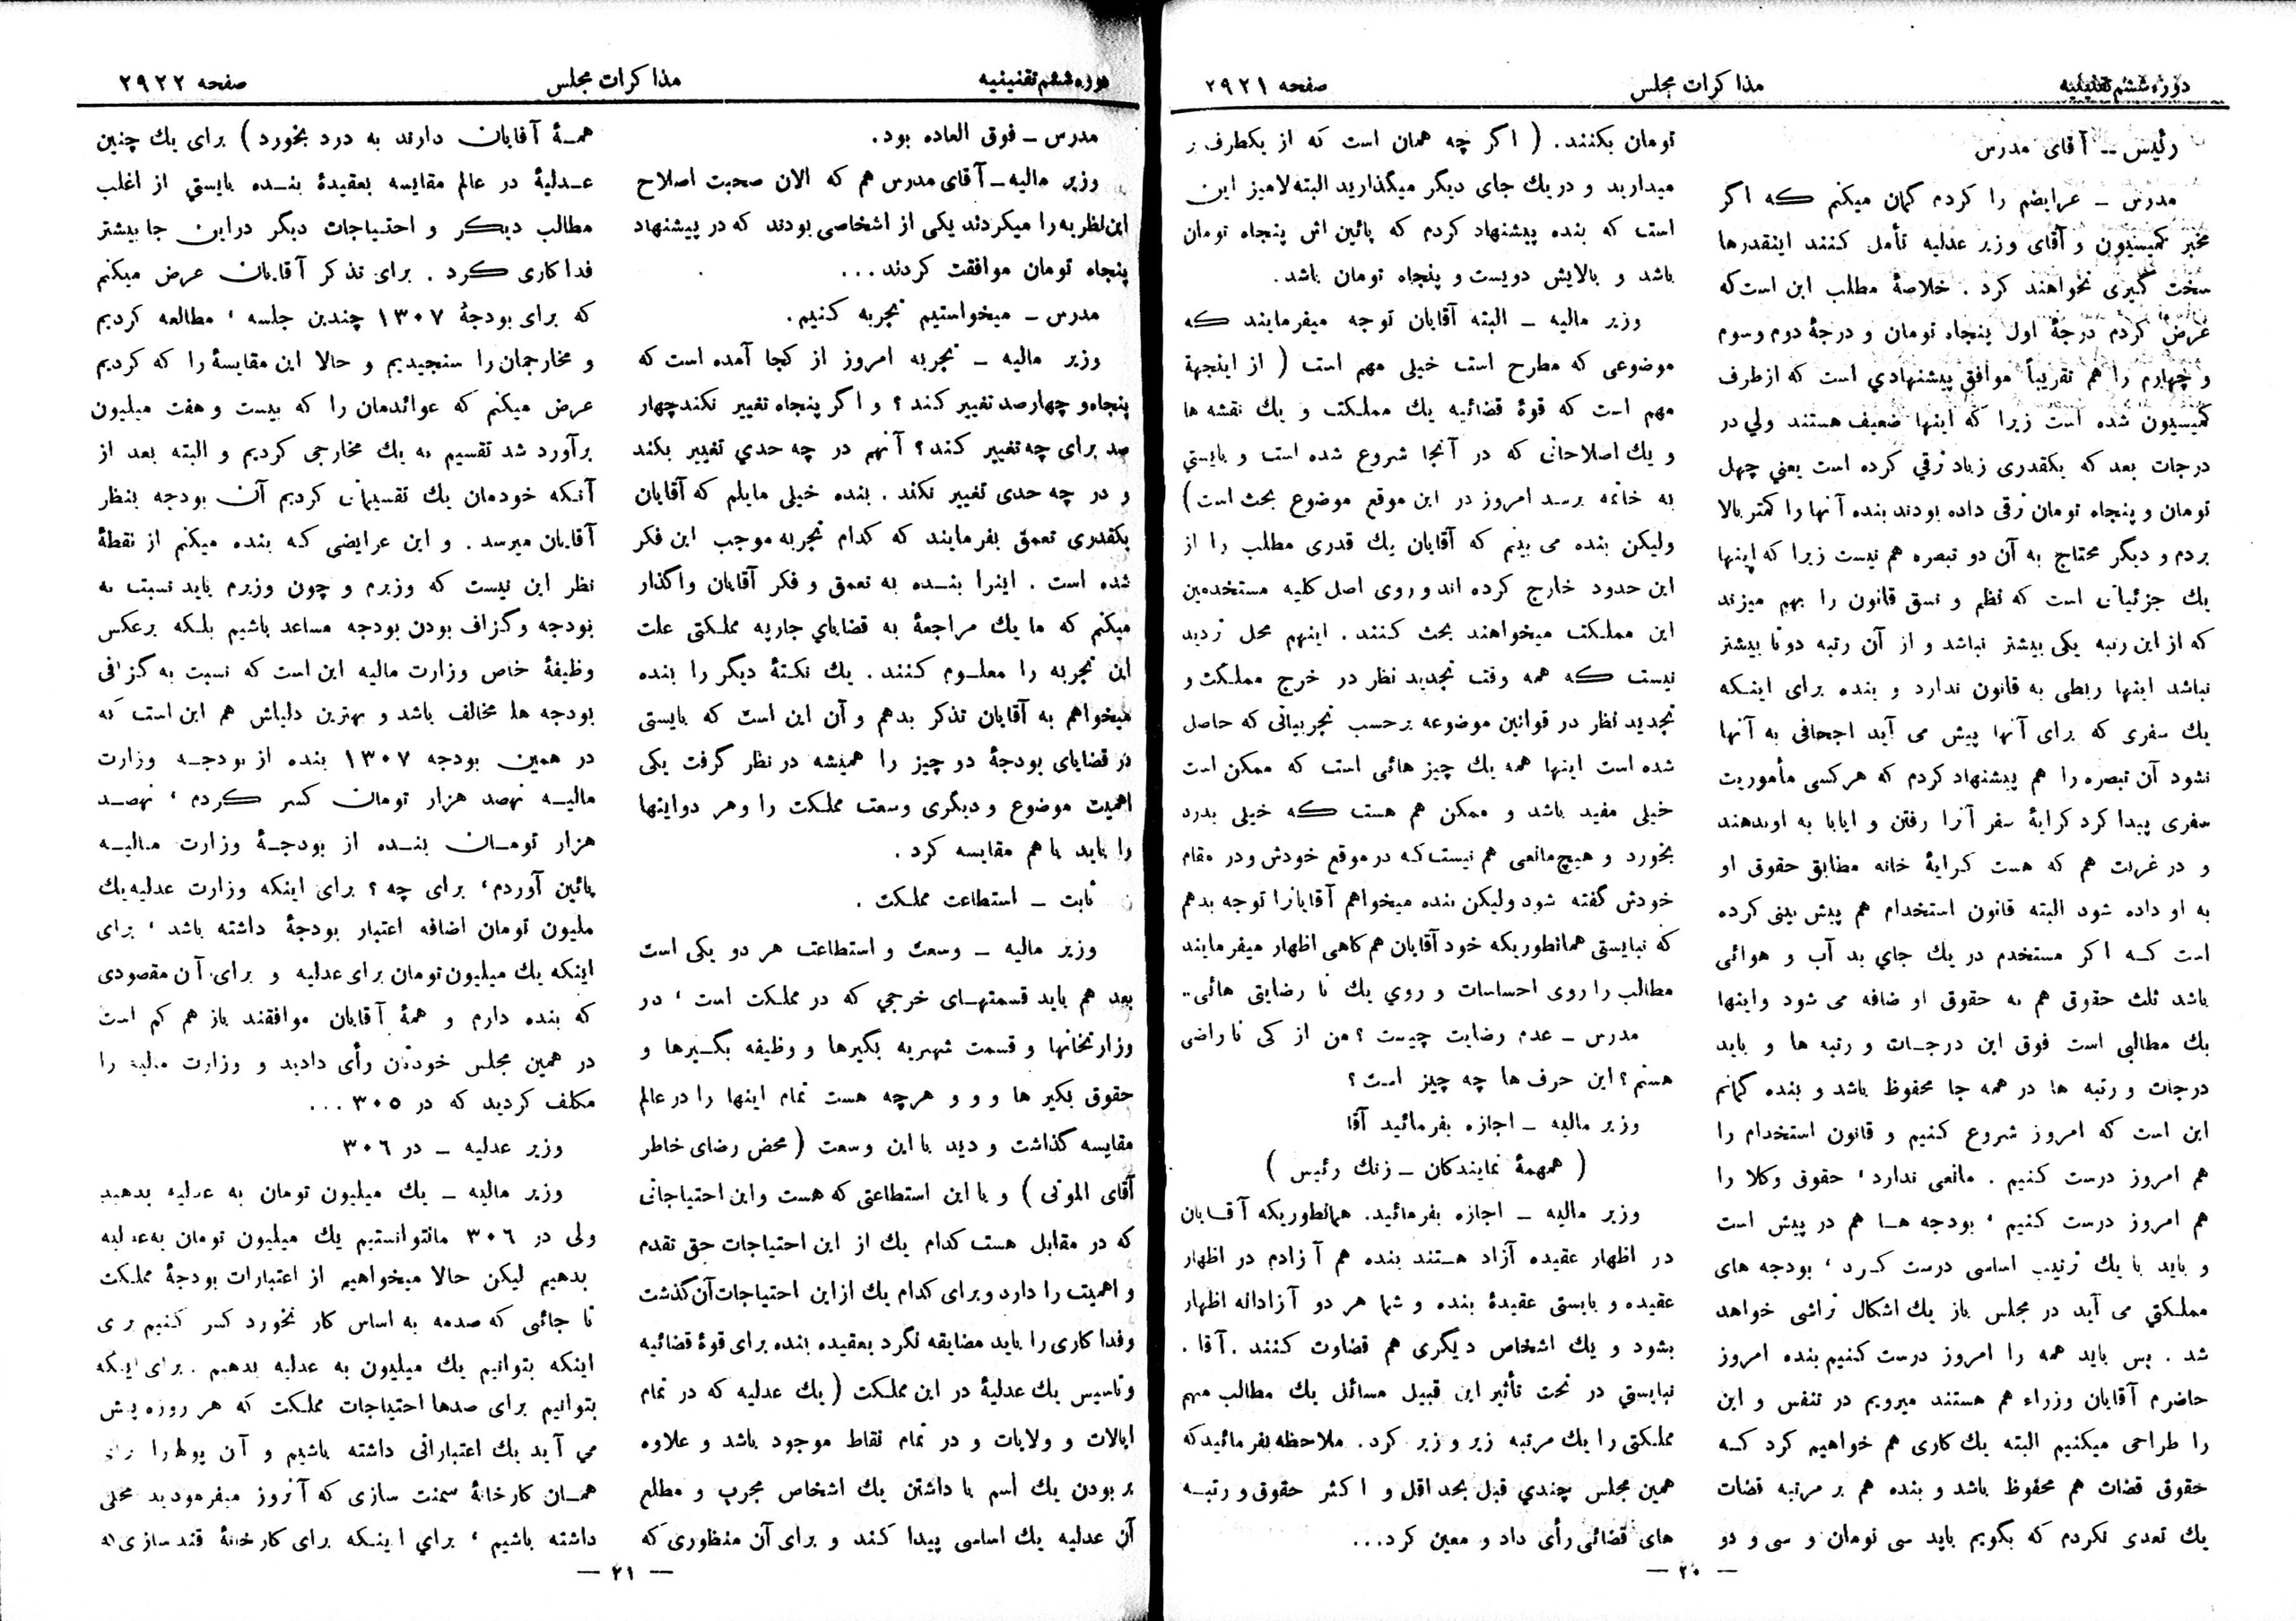 دوره ششم تقنینیه
مذاکرات مجلس
صفحه ۲۹۲۱
رئیس -- آقای مدرس
مدرس ــ عرایضم را کردم گمان میکنم که اگر
مخبر کمیسیون و آقای وزیر عدلیه تأمل کنند اینقدرها
سخت گیری نخواهند کرد . خلاصهٔ مطلب این است که
عرض کردم درجهٔ اول پنجاه تومان و درجهٔ دوم وسوم
و چهارم را هم تقریباً موافق پیشنهادي است که ازطرف
کمیسیون شده است زیرا که اینها ضعیف هستند ولي در
درجات بعد که یکقدری زیاد ترقي کرده است یعني چهل
تومان و پنجاه تومان ترقی داده بودند بنده آنها را کمتر بالا
بردم و دیگر محتاج به آن دو تبصره هم نیست زیرا که اینها
یك جزئیاتی است که نظم و نسق قانون را بهم میزند
که از این رتبه یکی بیشتر نباشد و از آن رتبه دوتا بیشتر
نباشد اینها ربطی به قانون ندارد و بنده برای اینکه
یك سفری که برای آنها پیش می آید اجحافی به آنها
نشود آن تبصره را هم پیشنهاد کردم که هرکسی مأموریت
سفری پیدا کرد کرایهٔ سفر آنرا رفتن و ایابا به او بدهند
و در غربت هم که هست کرایهٔ خانه مطابق حقوق او
به او داده شود البته قانون استخدام هم پیش بینی کرده
است که اگر مستخدم در یك جای بد آب و هوائی
باشد ثلث حقوق هم به حقوق او ضافه می شود واینها
یك مطالبی است فوق این درجات و رتبه ها و باید
درجات و رتبه ها در همه جا محفوظ باشد و بنده گمانم
این است که امروز شروع کنیم و قانون استخدام را
هم امروز درست کنیم . مانعی ندارد ، حقوق وکلا را
هم امروز درست کنیم ، بودجه ها هم در پیش است
و باید با یك ترتیب اساسی درست کرد ، بودجه های
مملکتي می آید در مجلس باز یك اشکال تراشی خواهد
شد . پس باید همه را امروز درست کنیم بنده امروز
حاضرم آقایان وزراء هم هستند میرویم در تنفس و این
را طراحی میکنیم البته یك کاری هم خواهیم کرد که
حقوق قضات هم محفوظ باشد و بنده هم بر مرتبه قضات
یك تعدی نکردم که بگویم باید سی تومان و سی و دو
تومان بکنند . ( اگر چه همان است که از یکطرف بر
میدارید و در یك جای دیگر میگذارید البته لامیز این
است که بنده پیشنهاد کردم که پائین اش پنجاه تومان
باشد و بالایش دویست و پنجاه تومان باشد .
وزیر مالیه ــ البته آقایان توجه میفرمایند که
موضوعی که مطرح است خیلی مهم است ( از اینجهة
مهم است که قوهٔ قضائیه یك مملکت و یك نقشه ها
و یك اصلاحاتی که در آنجا شروع شده است و بایستي
به خاتمه برسد امروز در این موقع موضوع بحث است)
ولیکن بنده می بینم که آقایان یك قدری مطلب را از
این حدود خارج کرده اند و روی اصل کلیه مستخدمین
این مملکت میخواهند بحث کنند . اینهم محل تردید
نیست که همه وقت تجدید نظر در خرج مملکت و
تجدید نظر در قوانین موضوعه برحسب تجربیاتی که حاصل
شده است اینها همه یك چیز هائی است که ممکن است
خیلی مفید باشد و ممکن هم هست که خیلی بدرد
بخورد و هیچ مانعی هم نیست که در موقع خودش ودر مقام
خودش گفته شود ولیکن بنده میخواهم آقایانرا توجه بدهم
که نبایستی همانطوریکه خود آقایان هم گاهی اظهار میفرمایند
مطالب را روی احساسات و روي یك نا رضایتی هائی..
مدرس ــ عدم رضایت چیست ؟ من از کی ناراضی
هستم ؟ این حرف ها چه چیز است ؟
وزیر مالیه ــ اجازه بفرمائید آقا
( همهمهٔ نمایندگان ــ زنك رئیس )
وزیر مالیه ــ اجازه بفرمائید . همانطوریکه آقایان
در اظهار عقیده آزاد هستند بنده هم آزادم در اظهار
عقیده و بایستی عقیدهٔ بنده و شما هر دو آزادانه اظهار
بشود و یك اشخاص دیگری هم قضاوت کنند . آقا .
نبایستي در تحت تأثیر این قبیل مسائل یك مطالب مهم
مملکتی را یك مرتبه زیر و زبر کرد . ملاحظه بفرمائید که
همین مجلس چندي قبل بحد اقل و اکثر حقوق و رتبه
های قضائی رأی داد و معین کرد ...
— ۲۰ —
دوره ششم تقنینیه
مذاکرات مجلس
صفحه ۲۹۲۲
مدرس ــ فوق العاده بود.
وزیر مالیه ــ آقای مدرس هم که الان صحبت اصلاح
این نظریه را میکردند یکی از اشخاصی بودند که در پیشنهاد
پنجاه تومان موافقت کردند ...
مدرس ــ میخواستیم تجربه کنیم.
وزیر مالیه ــ تجربه امروز از کجا آمده است که
پنجاه و چهارصد تغییر کند ؟ و اگر پنجاه تغییر نکند چهار
صد برای چه تغییر کند ؟ آنهم در چه حدي تغییر بکند
و در چه حدی تغییر نکند . بنده خیلی مایلم که آقایان
یکقدری تعمق بفرمایند که کدام تجربه موجب این فکر
شده است . اینرا بنده به تعمق و فکر آقایان واگذار
میکنم که ما یك مراجعهٔ به قضایای جاریه مملکتی علت
این تجربه را معلوم کنند . یك نکتهٔ دیگر را بنده
میخواهم به آقایان تذکر بدهم و آن این است که بایستی
در قضایای بودجهٔ دو چیز را همیشه در نظر گرفت یکی
اهمیت موضوع و دیگری وسعت مملکت را وهر دو اینها
را باید با هم مقایسه کرد .
ثابت ــ استطاعت مملکت .
وزیر مالیه ــ وسعت و استطاعت هر دو یکی است
بعد هم باید قسمتهای خرجي که در مملکت است ، در
وزارتخانها و قسمت شهریه بگیرها و وظیفه بگیرها و
حقوق بگیر ها و و و هرچه هست تمام اینها را در عالم
مقایسه گذاشت و دید با این وسعت ( محض رضای خاطر
آقای الموتی ) و با این استطاعتی که هست واین احتیاجاتی
که در مقابل هست کدام یك از این احتیاجات حق تقدم
و اهمیت را دارد و برای کدام یك از این احتیاجات آن گذشت
وفدا کاری را باید مضایقه نکرد بعقیده بنده برای قوهٔ قضائیه
وتاسیس یك عدلیهٔ در این مملکت ( یك عدلیه که در تمام
ایالات و ولایات و در تمام نقاط موجود باشد و علاوه
بر بودن یك اسم با داشتن یك اشخاص مجرب و مطلع
آن عدلیه یك اساسی پیدا کند و برای آن منظوری که
همهٔ آقایان دارند به درد بخورد ) برای یك چنین
عدلیهٔ در عالم مقایسه بعقیدهٔ بنده بایستي از اغلب
مطالب دیگر و احتیاجات دیگر دراین جا بیشتر
فدا کاری کرد . برای تذکر آقایان عرض میکنم
که برای بودجهٔ ۱۳۰۷ چندین جلسه ، مطالعه کردیم
و مخارجمان را سنجیدیم و حالا این مقایسهٔ را که کردیم
عرض میکنم که عوائدمان را که بیست و هفت میلیون
برآورد شد تقسیم به یك مخارجی کردیم و البته بعد از
آنکه خودمان یك تقسیماتی کردیم آن بودجه بنظر
آقایان میرسد . و این عرایضی که بنده میکنم از نقطهٔ
نظر این نیست که وزیرم و چون وزیرم باید نسبت به
بودجه و گزاف بودن بودجه مساعد باشیم بلکه برعکس
وظیفهٔ خاص وزارت مالیه این است که نسبت به گزافی
بودجه ها مخالف باشد و بهترین دلیلش هم این است که
در همین بودجه ۱۳۰۷ بنده از بودجه وزارت
مالیه نهصد هزار تومان کسر کردم ، نهصد
هزار تومان بنده از بودجهٔ وزارت مالیه
پائین آوردم ، برای چه ؟ برای اینکه وزارت عدلیه یك
ملیون تومان اضافه اعتبار بودجهٔ داشته باشد ، برای
اینکه یك میلیون تومان برای عدلیه و برای آن مقصودی
که بنده دارم و همهٔ آقایان موافقند باز هم کم است
در همین مجلس خودتان رأی دادید و وزارت مالیه را
مکلف کردید که در ۳۰۵ ...
وزیر عدلیه ــ در ۳۰۶
وزیر مالیه ــ یك میلیون تومان به عدلیه بدهید
ولی در ۳۰۶ مانتوانستیم یك میلیون تومان به عدلیه
بدهیم لیکن حالا میخواهیم از اعتبارات بودجهٔ مملکت
تا جائی که صدمه به اساس کار نخورد کسر کنیم برای
اینکه بتوانیم یك میلیون به عدلیه بدهیم . برای اینکه
بتوانیم برای صدها احتیاجات مملکت که هر روزه پیش
می آید یك اعتباراتی داشته باشیم و آن پولها را برای
همان کارخانهٔ سمنت سازی که آنروز میفرمودید محلی
داشته باشیم ، براي اینکه برای کارخانهٔ قند سازی که
— ۲۱ —